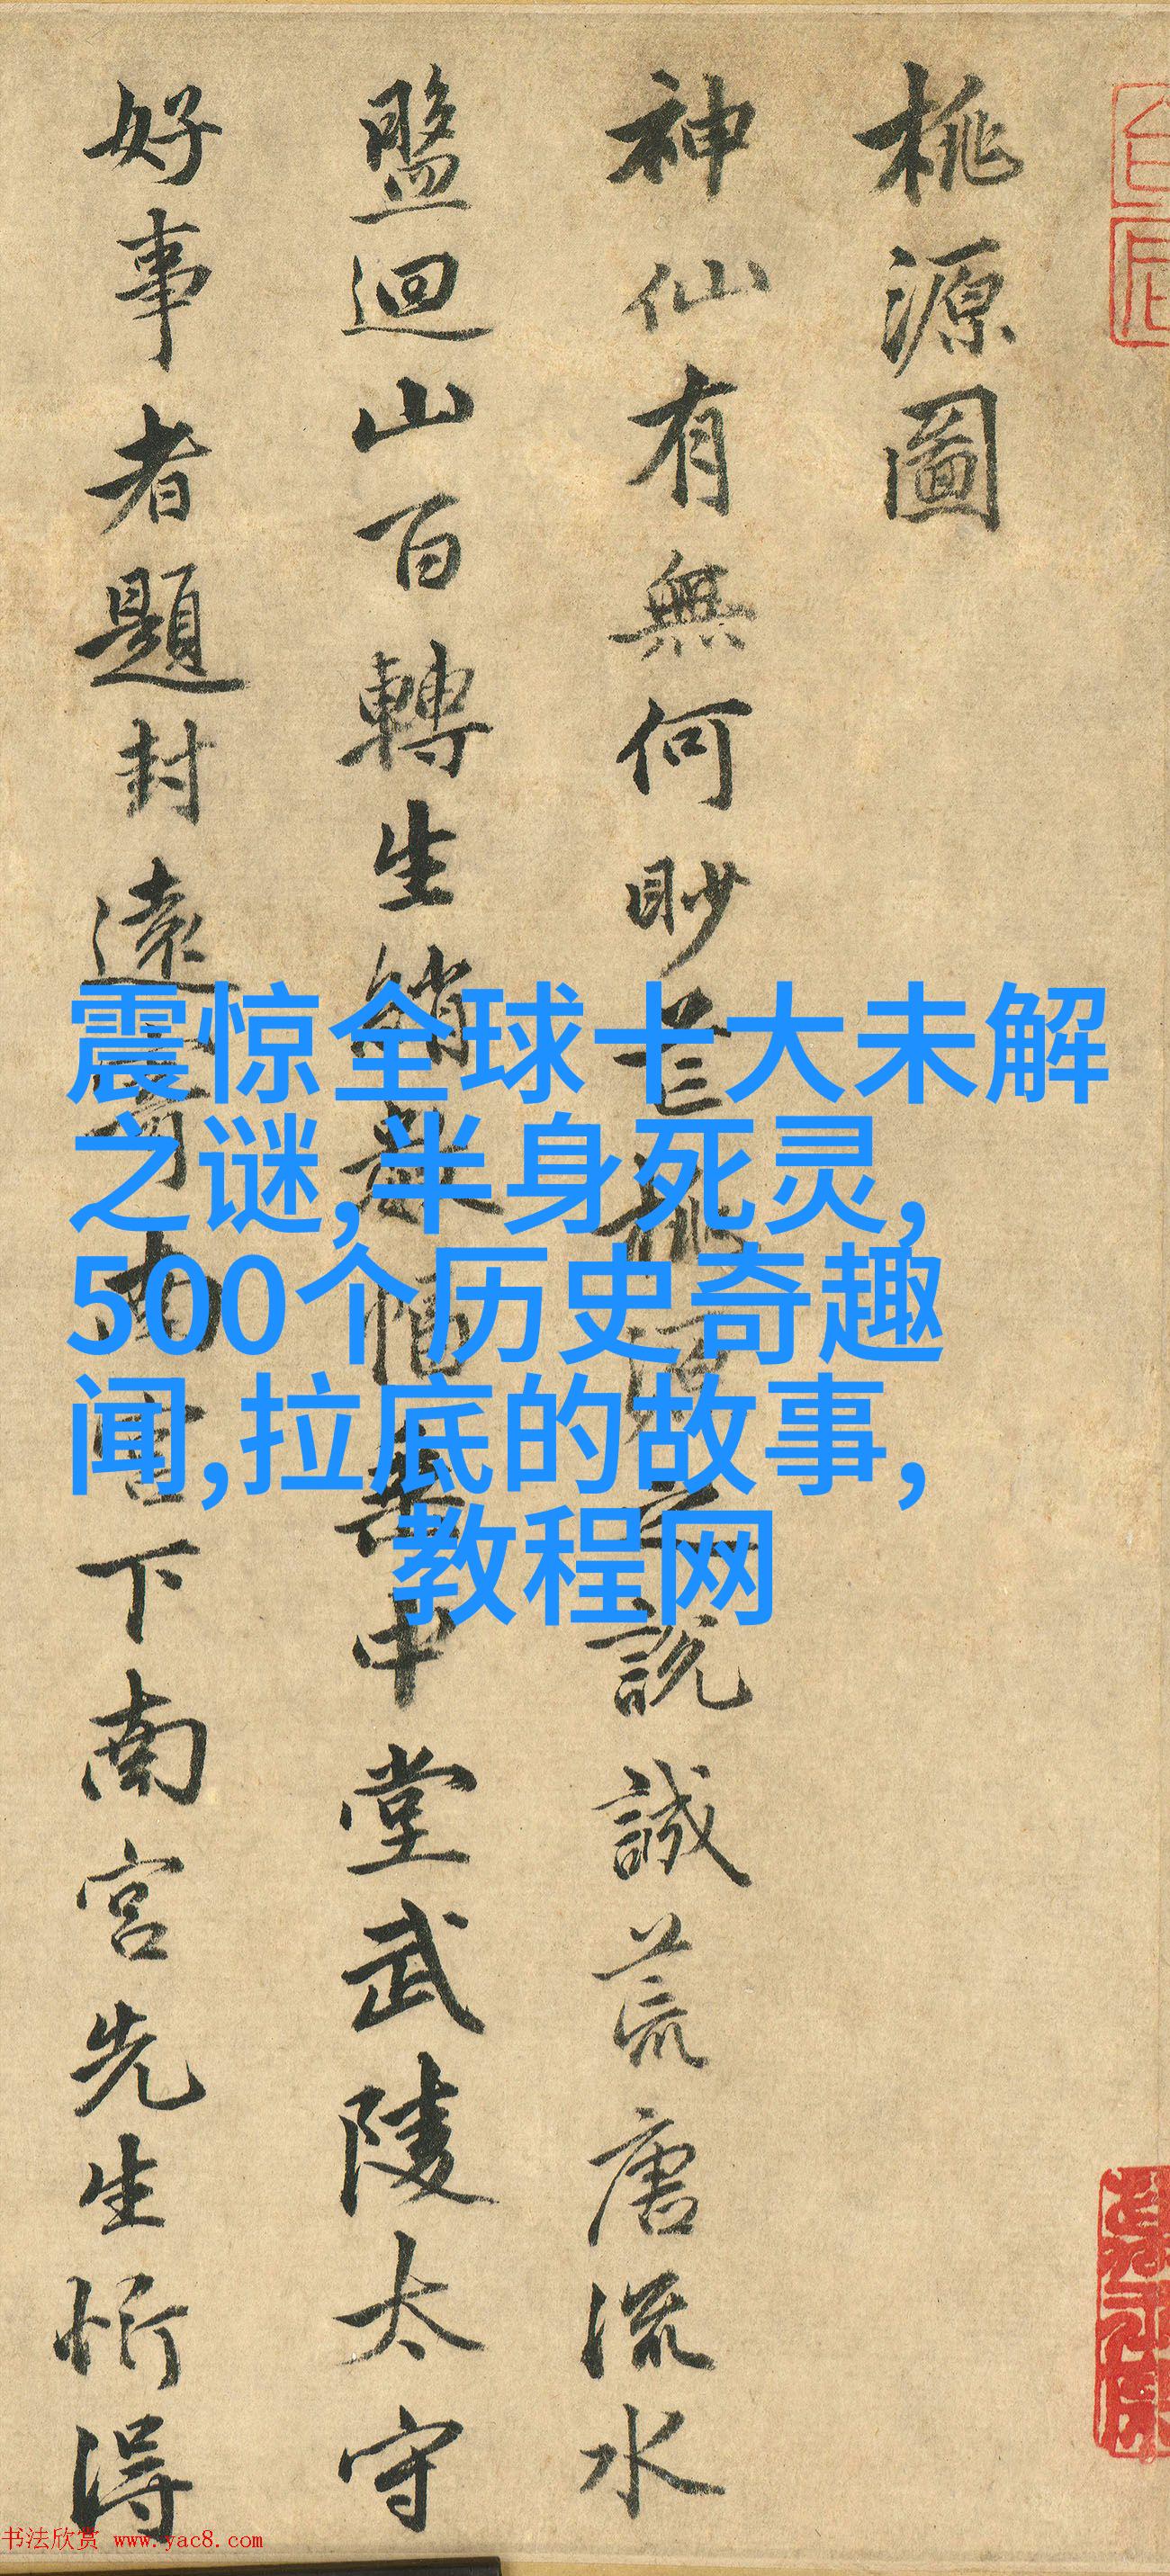 桃源圖
神仙有無何眇芒桃源之說誠荒唐流水
盤迴山百轉生綃數幅垂中堂武陵太守
好事者題封遠寄南宮下南宮先生忻得
震惊全球十大未解
之谜,半身死灵,
500个历史奇趣
闻,拉底的故事,
教程网
书法欣赏 www.yac8.com